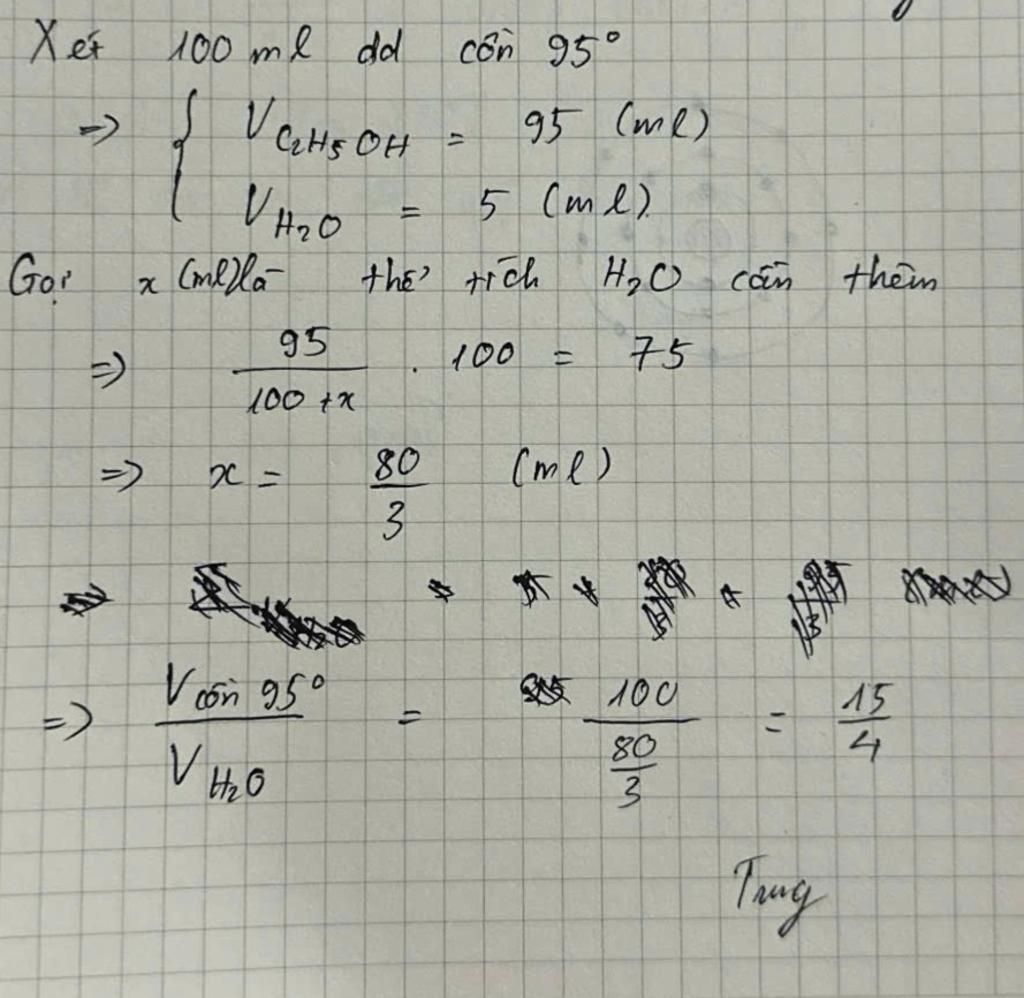 Xét 100 ml dd cồn 95°
=> { V C2H5OH = 95 (ml)
V H2O = 5 (ml)
Gọi x (ml) là thể tích H2O cần thêm
=> 95/(100+x) . 100 = 75
=> x = 80/3 (ml)
=> V cồn 95° / V H2O = 100/(80/3) = 15/4
Trung